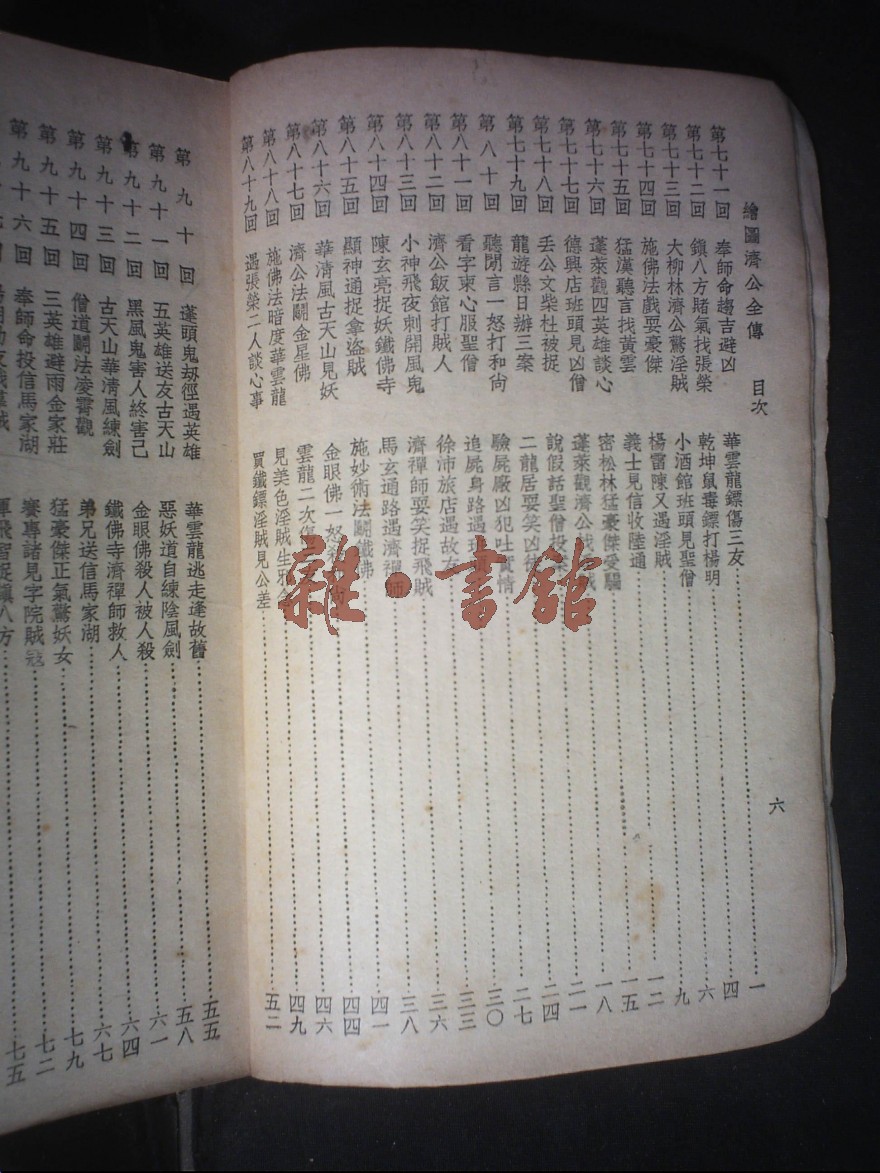 繪圖濟公全傳 目次 六
第七十一回 奉師命趨吉避凶 華雲龍鏢傷三友 一
第七十二回 鎮八方賭氣找張榮 乾坤鼠毒鏢打楊明 四
第七十三回 大柳林濟公驚淫賊 小酒館班頭見聖僧 六
第七十四回 施佛法戲耍豪傑 楊雷陳又遇淫賊 九
第七十五回 猛漢聽言找黃雲 義士見信收陸通 一二
第七十六回 蓬萊觀四英雄談心 密松林猛豪傑受騙 一五
第七十七回 德興店班頭見凶僧 蓬萊觀濟公找 賊 一八
第七十八回 丢公文柴杜被捉 說假話聖僧投 二一
第七十九回 龍遊縣日辦三案 二龍居耍笑凶徒 二四
第八十回 聽閒言一怒打和尚 驗屍廠凶犯吐實情 二七
第八十一回 看字柬心服聖僧 追屍身路遇班頭 三〇
第八十二回 濟公飯館打賊人 徐沛旅店遇故友 三三
第八十三回 小神飛夜刺開風鬼 濟禪師耍笑捉飛賊 三六
第八十四回 陳玄亮捉妖鐵佛寺 馬玄通路遇濟禪師 三八
第八十五回 顯神通捉拿盜賊 施妙術法鬭鐵佛 四一
第八十六回 華清風古天山見妖 金眼佛一怒殺 四四
第八十七回 濟公法鬭金星佛 雲龍二次傷 四六
第八十八回 施佛法暗度華雲龍 見美色淫賊生邪念 四九
第八十九回 遇張榮二人談心事 買鐵鏢淫賊見公差 五二
第九十回 蓬頭鬼刼徑遇英雄 華雲龍逃走逢故舊 五五
第九十一回 五英雄送友古天山 惡妖道自練陰風劍 五八
第九十二回 黑風鬼害人終害己 金眼佛殺人被人殺 六一
第九十三回 古天山華清風練劍 鐵佛寺濟禪師救人 六四
第九十四回 僧道鬭法凌霄觀 弟兄送信馬家湖 六七
第九十五回 三英雄避雨金家莊 猛豪傑正氣驚妖女 七九
第九十六回 奉師命投信馬家湖 賽專諸見字院賊寇 七二
捉鎮八方 七五
雜·書館